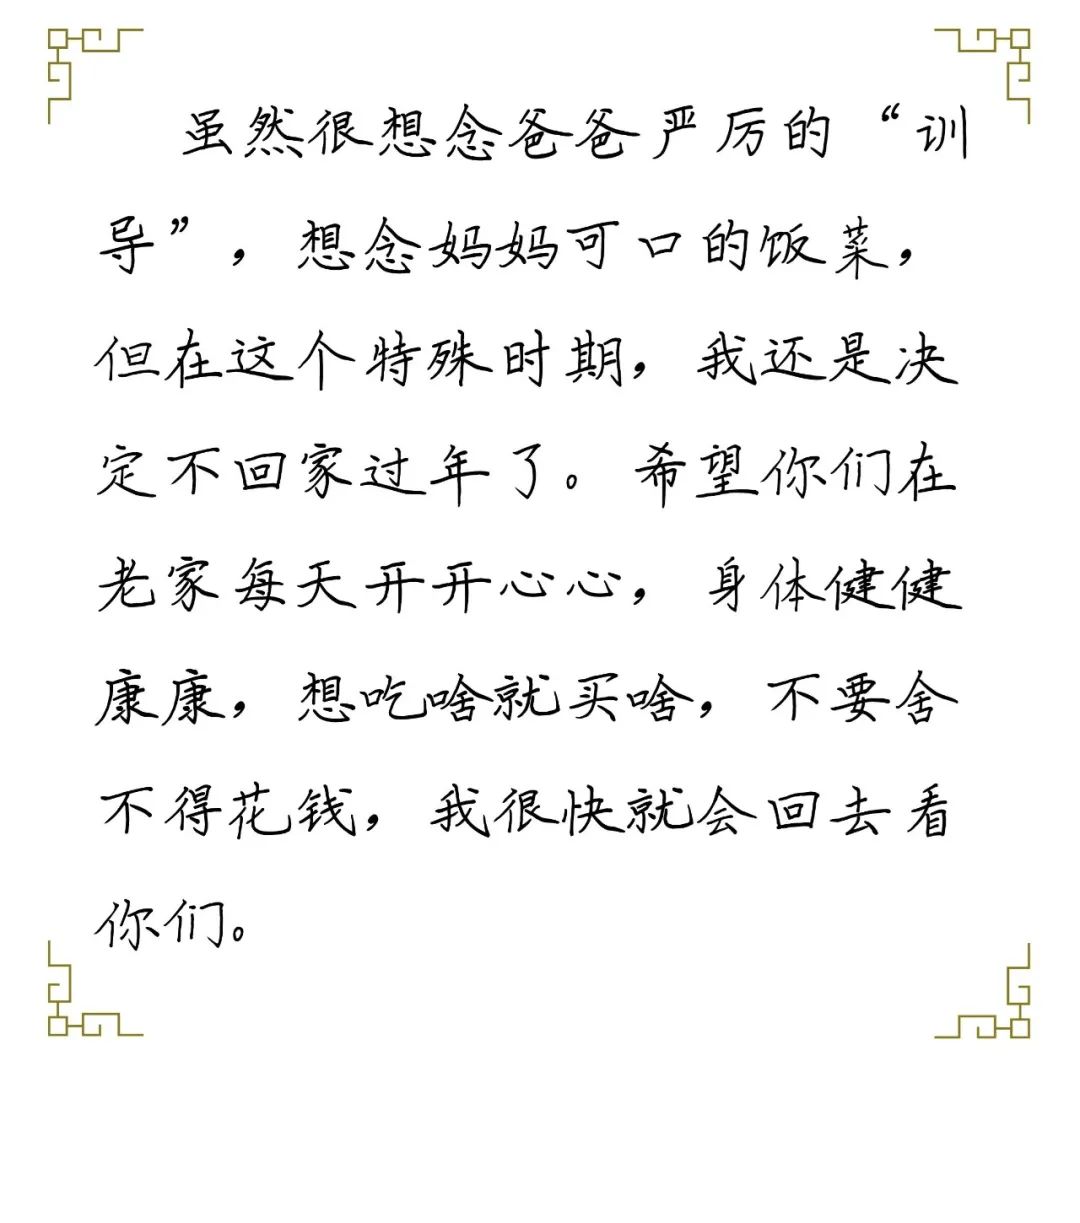 虽然很想念爸爸严厉的“训
导”，想念妈妈可口的饭菜，
但在这个特殊时期，我还是决
定不回家过年了。希望你们在
老家每天开开心心，身体健健
康康，想吃啥就买啥，不要舍
不得花钱，我很快就会回去看
你们。